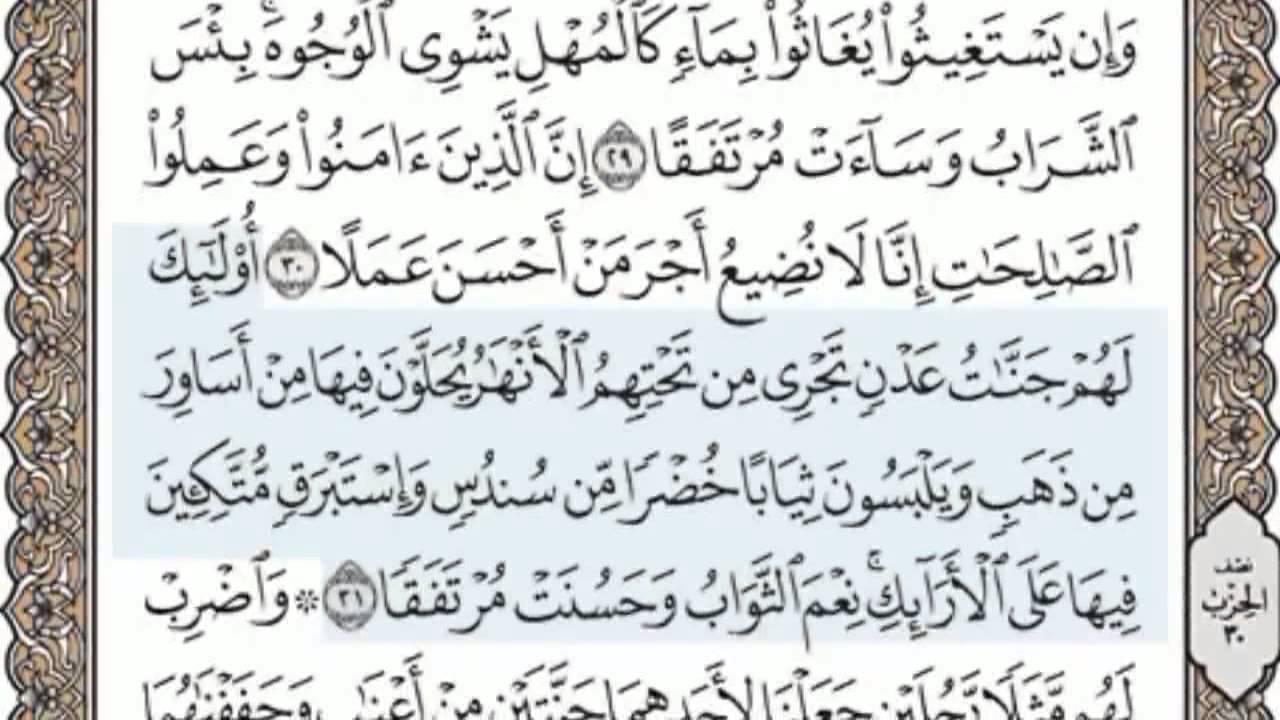 وَإِن يَسْتَغِيثُوا۟ يُغَاثُوا۟ بِمَآءٍ كَٱلْمُهْلِ يَشْوِى ٱلْوُجُوهَ ۚ بِئْسَ
ٱلشَّرَابُ وَسَآءَتْ مُرْتَفَقًا ٢٩ إِنَّ ٱلَّذِينَ ءَامَنُوا۟ وَعَمِلُوا۟
ٱلصَّـٰلِحَـٰتِ إِنَّا لَا نُضِيعُ أَجْرَ مَنْ أَحْسَنَ عَمَلًا ٣٠ أُو۟لَـٰٓئِكَ
لَهُمْ جَنَّـٰتُ عَدْنٍ تَجْرِى مِن تَحْتِهِمُ ٱلْأَنْهَـٰرُ يُحَلَّوْنَ فِيهَا مِنْ أَسَاوِرَ
مِن ذَهَبٍ وَيَلْبَسُونَ ثِيَابًا خُضْرًا مِّن سُندُسٍ وَإِسْتَبْرَقٍ مُّتَّكِـِٔينَ
فِيهَا عَلَى ٱلْأَرَآئِكِ ۚ نِعْمَ ٱلثَّوَابُ وَحَسُنَتْ مُرْتَفَقًا ٣١ ۞ وَٱضْرِبْ
لَهُم مَّثَلًا رَّجُلَيْنِ جَعَلْنَا لِأَحَدِهِمَا جَنَّتَيْنِ مِنْ أَعْنَـٰبٍ وَحَفَفْنَـٰهُمَا
نصف
الحزب
٣٠